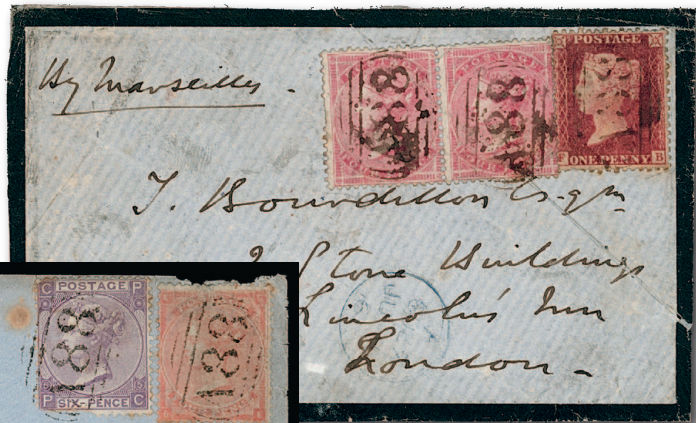 By Marseilles
188
188
188
POSTAGE
ONE PENNY
B
J. Bourdillon Esqre
2 Stone Buildings
Lincoln's Inn
London
C POSTAGE P
188
188
P SIX-PENCE C